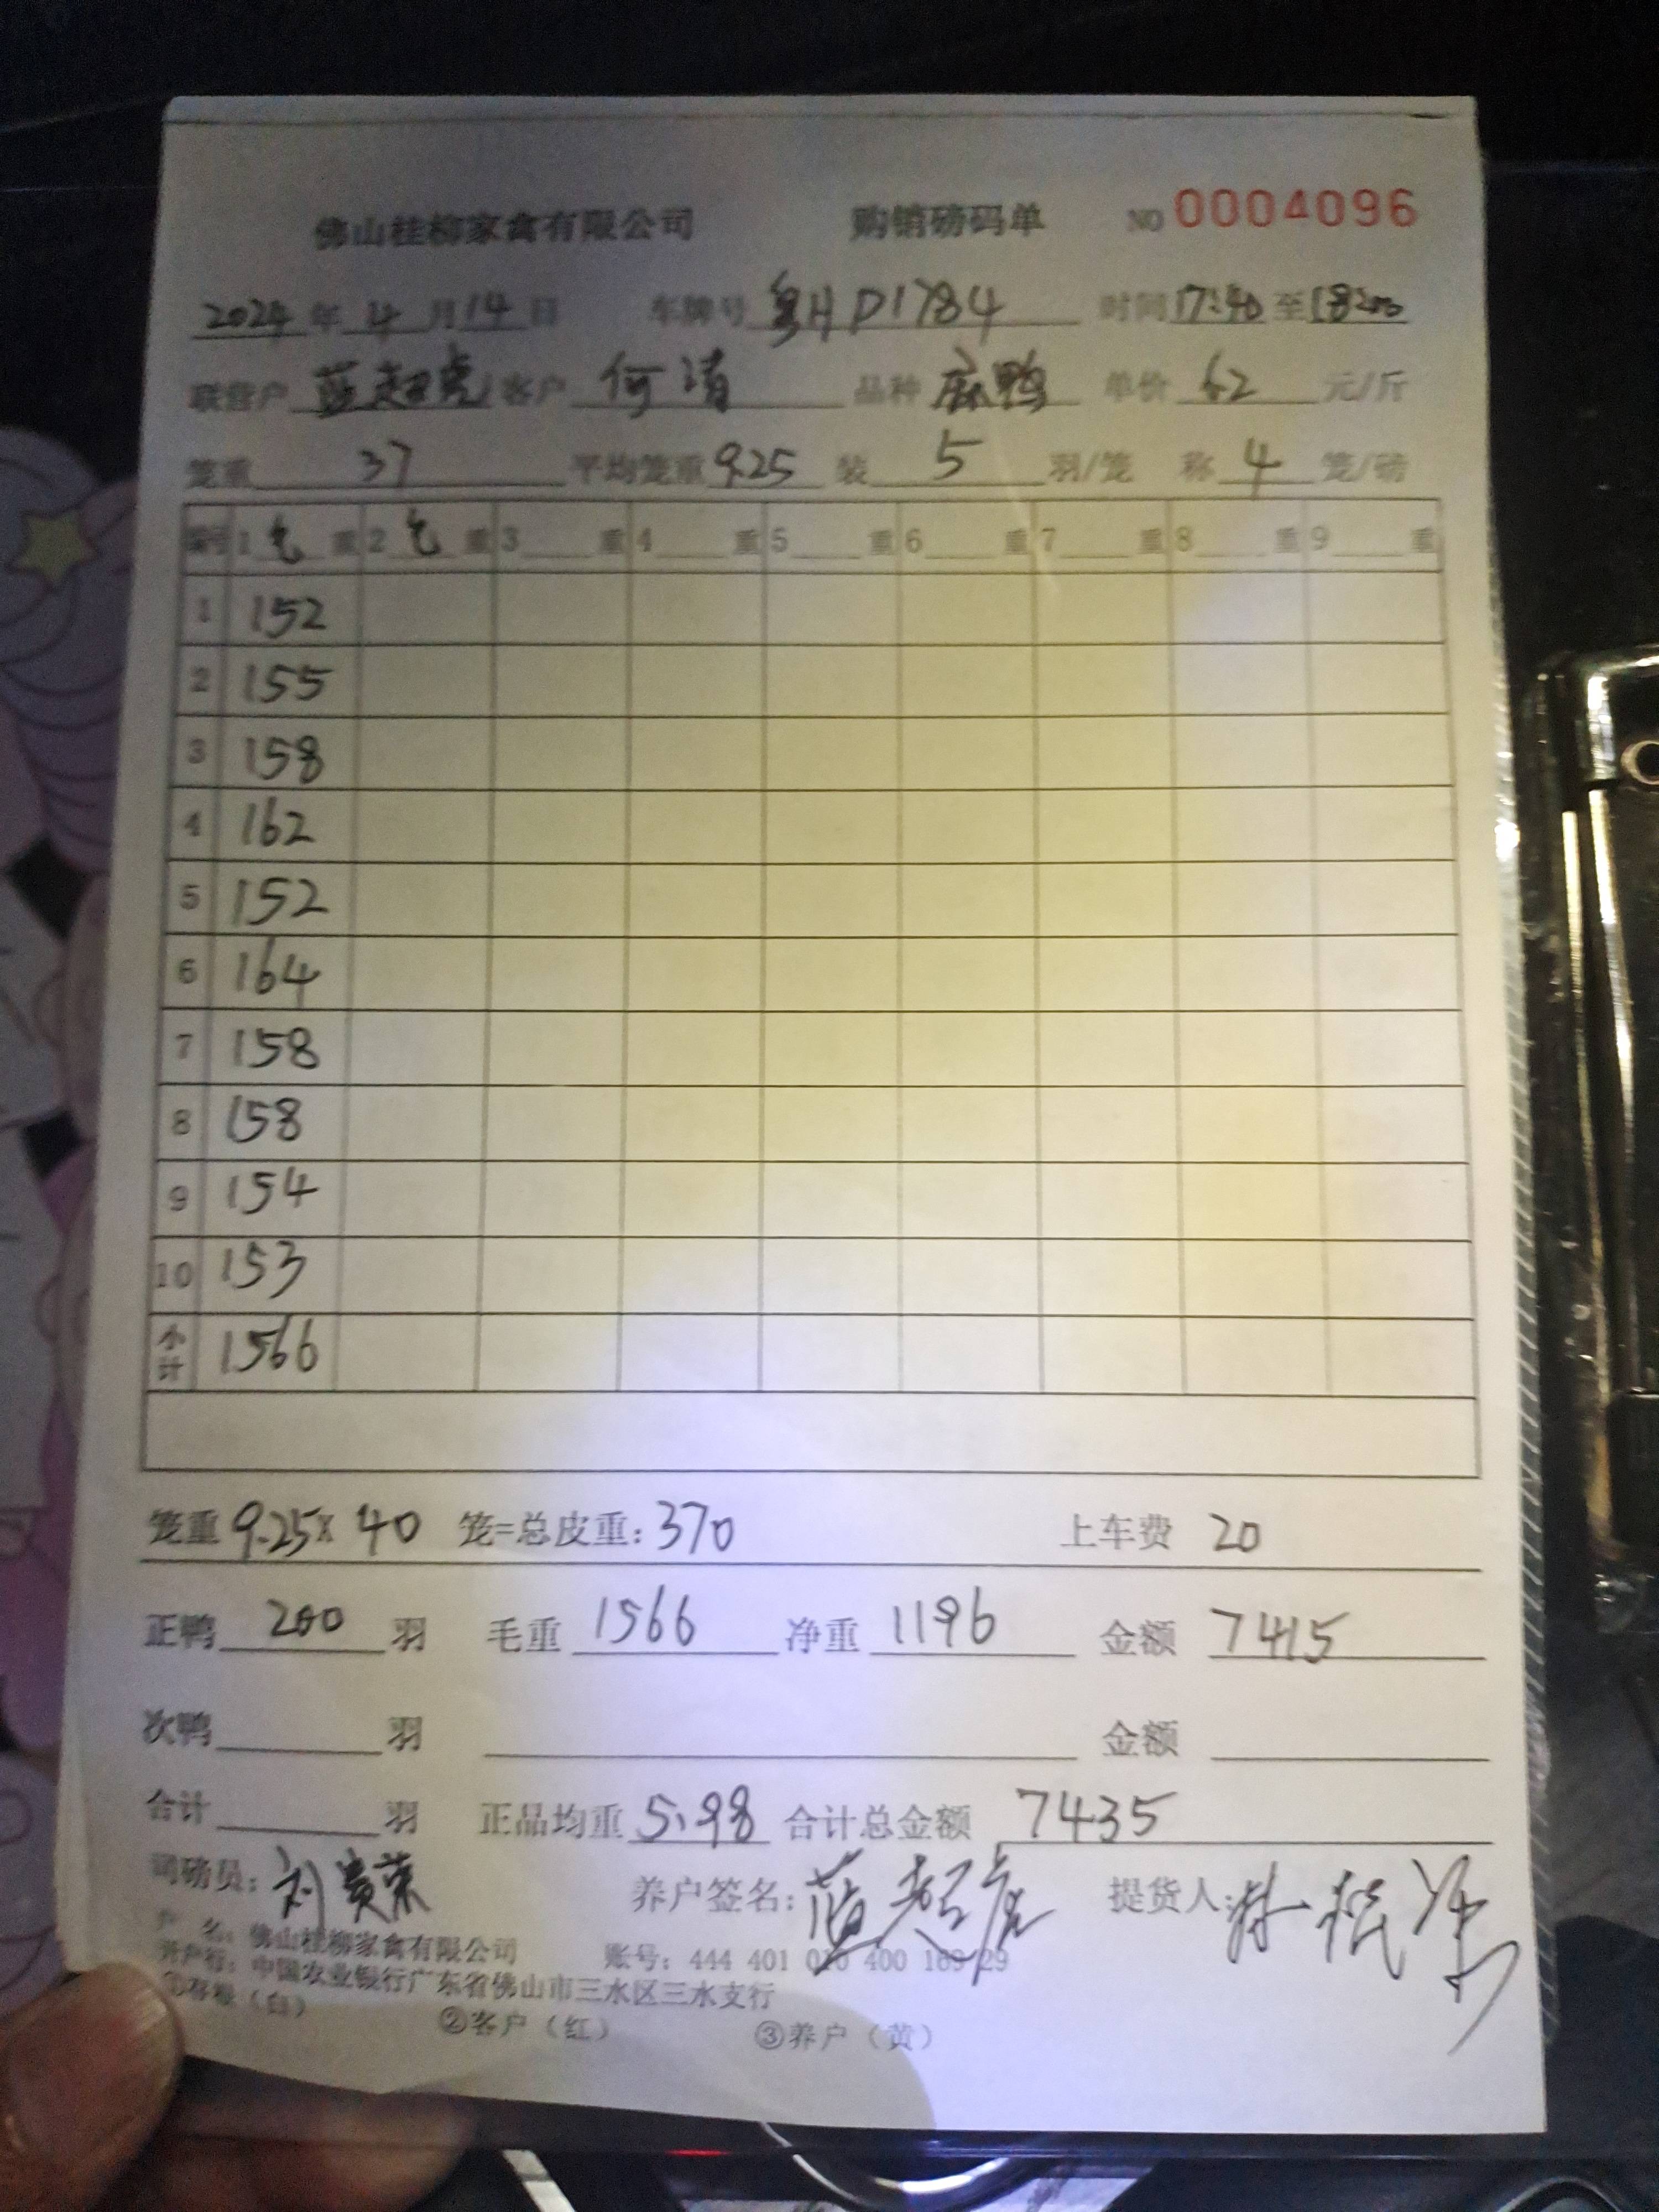 佛山桂柳家禽有限公司 购销磅码单 NO 0004096
2024 年 4 月 14 日 车牌号 粤H D1784 时间 17:40 至 18:00
联营户 蓝超虎 客户 何清 品种 麻鸭 单价 6.2 元/斤
笼重 37 平均笼重 9.25 装 5 羽/笼 称 4 笼/磅
编号 1 毛 重 2 毛 重 3 重 4 重 5 重 6 重 7 重 8 重 9 重
1 152
2 155
3 158
4 162
5 152
6 164
7 158
8 158
9 154
10 153
小计 1566
笼重 9.25 X 40 笼=总皮重: 370 上车费 20
正鸭 200 羽 毛重 1566 净重 1196 金额 7415
次鸭 羽 金额
合计 羽 正品均重 5.98 合计总金额 7435
司磅员: 刘贵荣 养户签名: 蓝超虎 提货人:
户 名: 佛山桂柳家禽有限公司 账号: 444 401 010 400 169 29
开户行: 中国农业银行广东省佛山市三水区三水支行
①存根（白） ②客户（红） ③养户（黄）